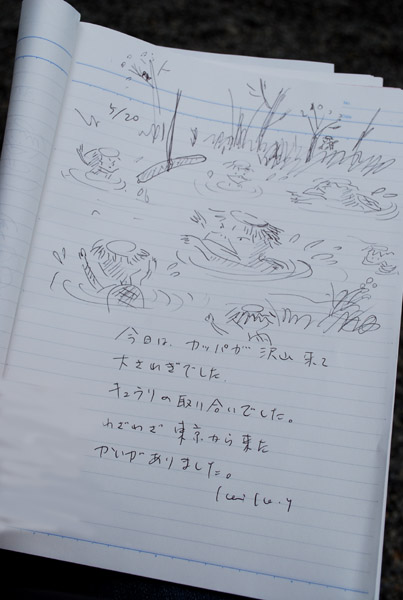 5/20
今日は、カッパが沢山来て
大さわぎでした。
キュウリの取り合いでした。
わざわざ東京から来た
かいがありました。